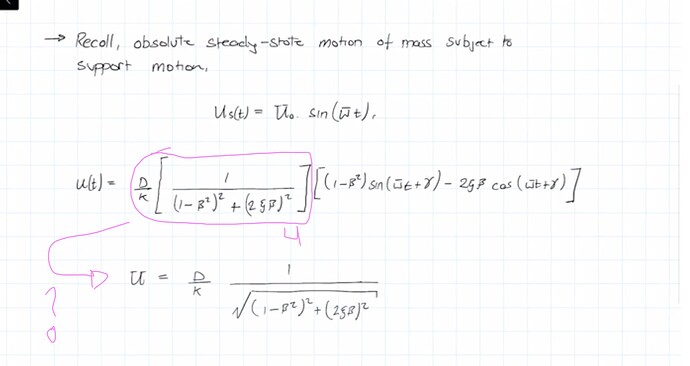 → Recall, absolute steady-state motion of mass subject to
support motion,
Us(t) = U̅₀ sin(ω̅t),
u(t) = D/K [ 1 / ((1-β²)² + (2ξβ)²) ] [ (1-β²) sin(ω̅t+γ) - 2ξβ cos(ω̅t+γ) ]
U = D/K 1 / √((1-β²)² + (2ξβ)²)
?